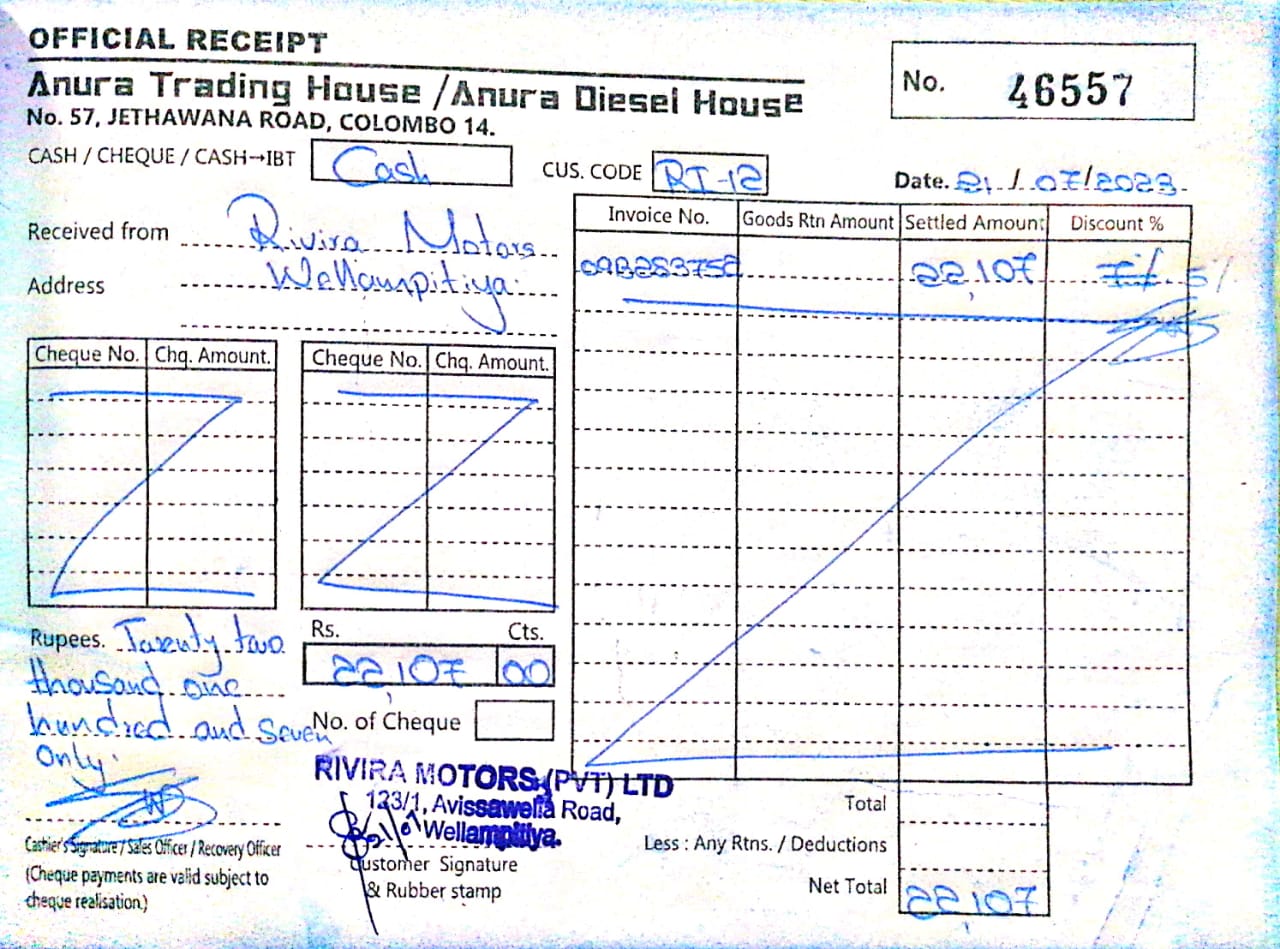 OFFICIAL RECEIPT
Anura Trading House / Anura Diesel House
No. 57, JETHAWANA ROAD, COLOMBO 14.
No. 46557
CASH / CHEQUE / CASH→IBT Cash
CUS. CODE RI-12
Date. 21/07/2023
Received from Rivira Motors
Address Wellampitiya.
Invoice No. Goods Rtn Amount Settled Amount Discount %
22,107 5%
Cheque No. Chq. Amount. Cheque No. Chq. Amount.
Rupees. Twenty two
thousand one
hundred and Seven
Only.
Rs. Cts.
22,107 00
No. of Cheque
RIVIRA MOTORS (PVT) LTD
123/1, Avissawella Road,
Wellampitiya.
Cashier's Signature / Sales Officer / Recovery Officer
(Cheque payments are valid subject to
cheque realisation.)
Customer Signature
& Rubber stamp
Total
Less : Any Rtns. / Deductions
Net Total 22,107